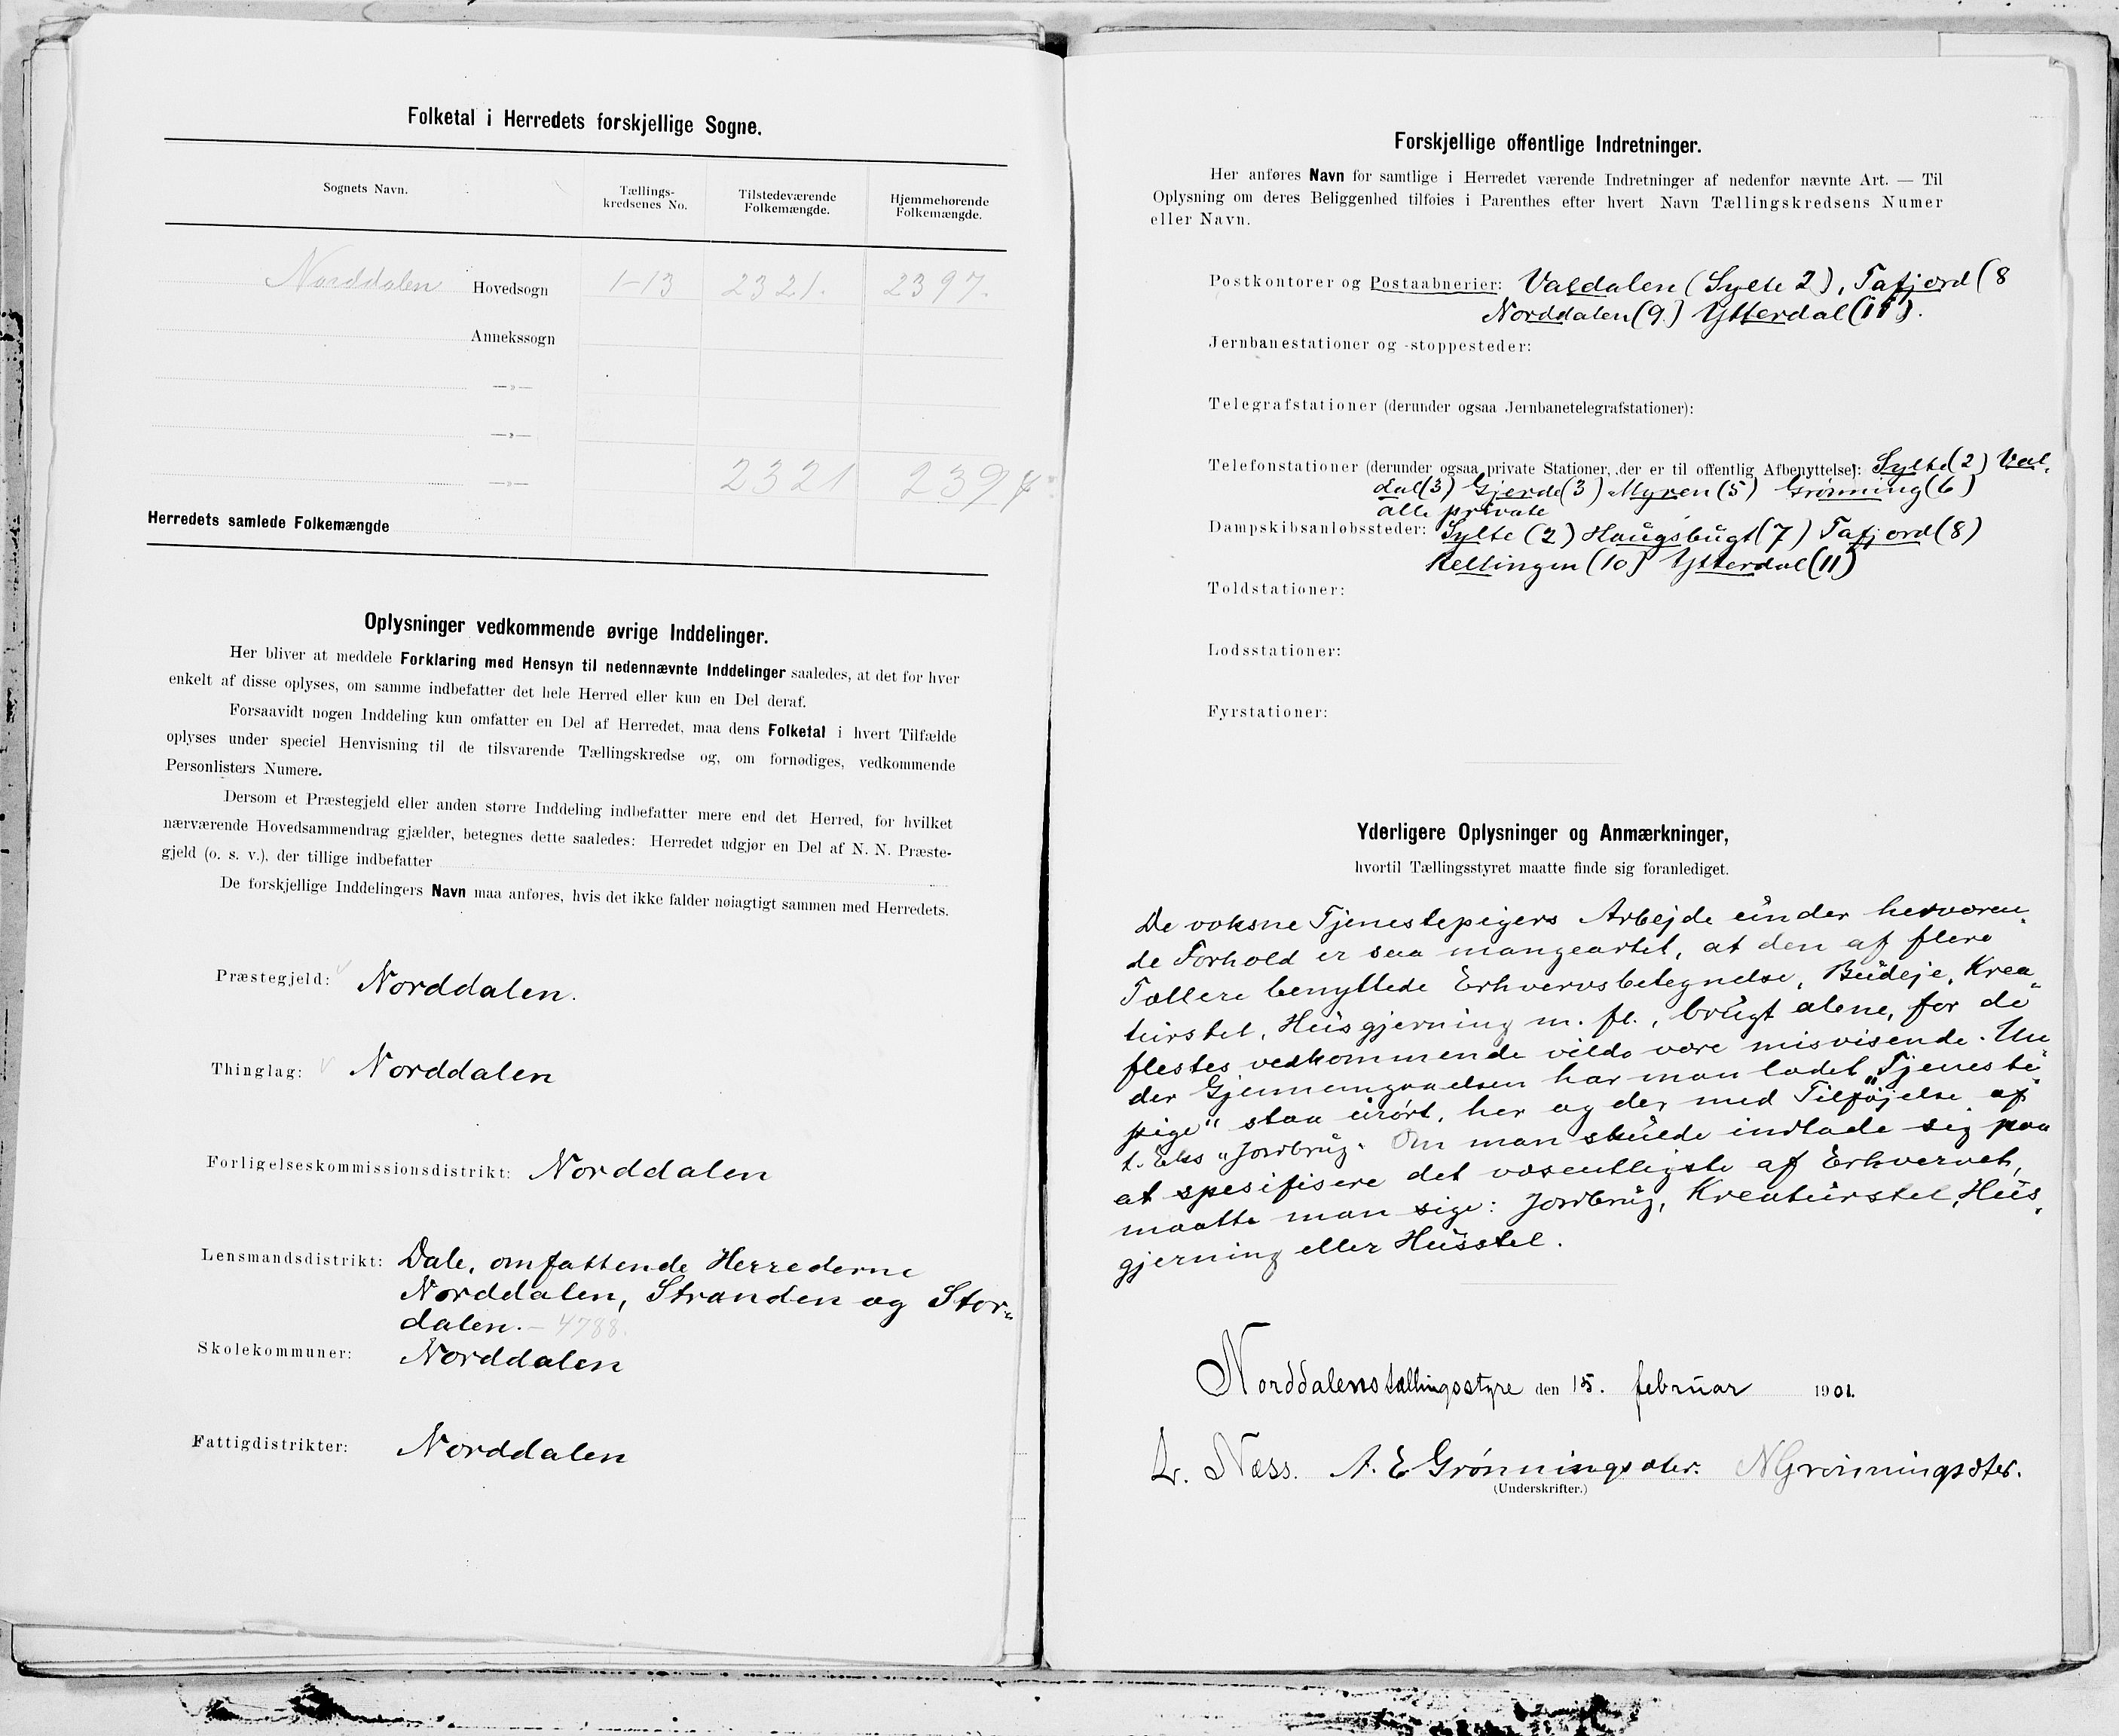 Folketal i Herredets forskjellige Sogne.
Sognets Navn.
Tællings-
kredsenes No.
Tilstedeværende
Folkemængde.
Hjemmehørende
Folkemængde.
Norddalen Hovedsogn 1-13 2321. 2397.
Annekssogn
—„—
—„—
—„— 2321 2397
Herredets samlede Folkemængde
Oplysninger vedkommende øvrige Inddelinger.
Her bliver at meddele Forklaring med Hensyn til nedennævnte Inddelinger saaledes, at det for hver
enkelt af disse oplyses, om samme indbefatter det hele Herred eller kun en Del deraf.
Forsaavidt nogen Inddeling kun omfatter en Del af Herredet, maa dens Folketal i hvert Tilfælde
oplyses under speciel Henvisning til de tilsvarende Tællingskredse og, om fornødiges, vedkommende
Personlisters Numere.
Dersom et Præstegjeld eller anden større Inddeling indbefatter mere end det Herred, for hvilket
nærværende Hovedsammendrag gjælder, betegnes dette saaledes: Herredet udgjør en Del af N. N. Præste-
gjeld (o. s. v.), der tillige indbefatter
De forskjellige Inddelingers Navn maa anføres, hvis det ikke falder nøiagtigt sammen med Herredets.
Præstegjeld: Norddalen.
Thinglag: Norddalen
Forligelseskommissionsdistrikt: Norddalen
Lensmandsdistrikt: Dale, omfattende Herrederne
Norddalen, Stranden og Stor-
dalen. – 4788.
Skolekommuner: Norddalen
Fattigdistrikter: Norddalen
Forskjellige offentlige Indretninger.
Her anføres Navn for samtlige i Herredet værende Indretninger af nedenfor nævnte Art. — Til
Oplysning om deres Beliggenhed tilføies i Parenthes efter hvert Navn Tællingskredsens Numer
eller Navn.
Postkontorer og Postaabnerier: Valdalen (Sylte 2), Tafjord (8
Norddalen (9) Ytterdal (11).
Jernbanestationer og -stoppesteder:
Telegrafstationer (derunder ogsaa Jernbanetelegrafstationer):
Telefonstationer (derunder ogsaa private Stationer, der er til offentlig Afbenyttelse): Sylte (2) Val-
dal (3) Gjerde (3) Myren (5) Grønning (6)
alle private
Dampskibsanløbssteder: Sylte (2) Haugsbugt (7) Tafjord (8)
Rellingen (10) Ytterdal (11)
Toldstationer:
Lodsstationer:
Fyrstationer:
Yderligere Oplysninger og Anmærkninger,
hvortil Tællingsstyret maatte finde sig foranlediget.
De voksne Tjenestepigers Arbejde under herværen-
de Forhold er saa mangeartet, at den af flere
Tællere benyttede Erhvervsbetegnelse, Budeje, Krea-
turstel, Husgjerning m. fl., brugt alene, for de
flestes vedkommende vilde være misvisende. Un-
der Gjennemgaaelsen har man ladet „Tjeneste-
pige“ staa urørt, her og der med Tilføjelse af
t. Eks „Jordbrug“. Om man skulde indlade sig paa
at spesifisere det væsentligste af Erhvervet,
maatte man sige: Jordbrug, Kreaturstel, Hus-
gjerning eller Husstel.
Norddalens tællingsstyre den 15. februar 1901.
L. Næss. A. E Grønningsæter. N Grønningsæter.
(Underskrifter.)